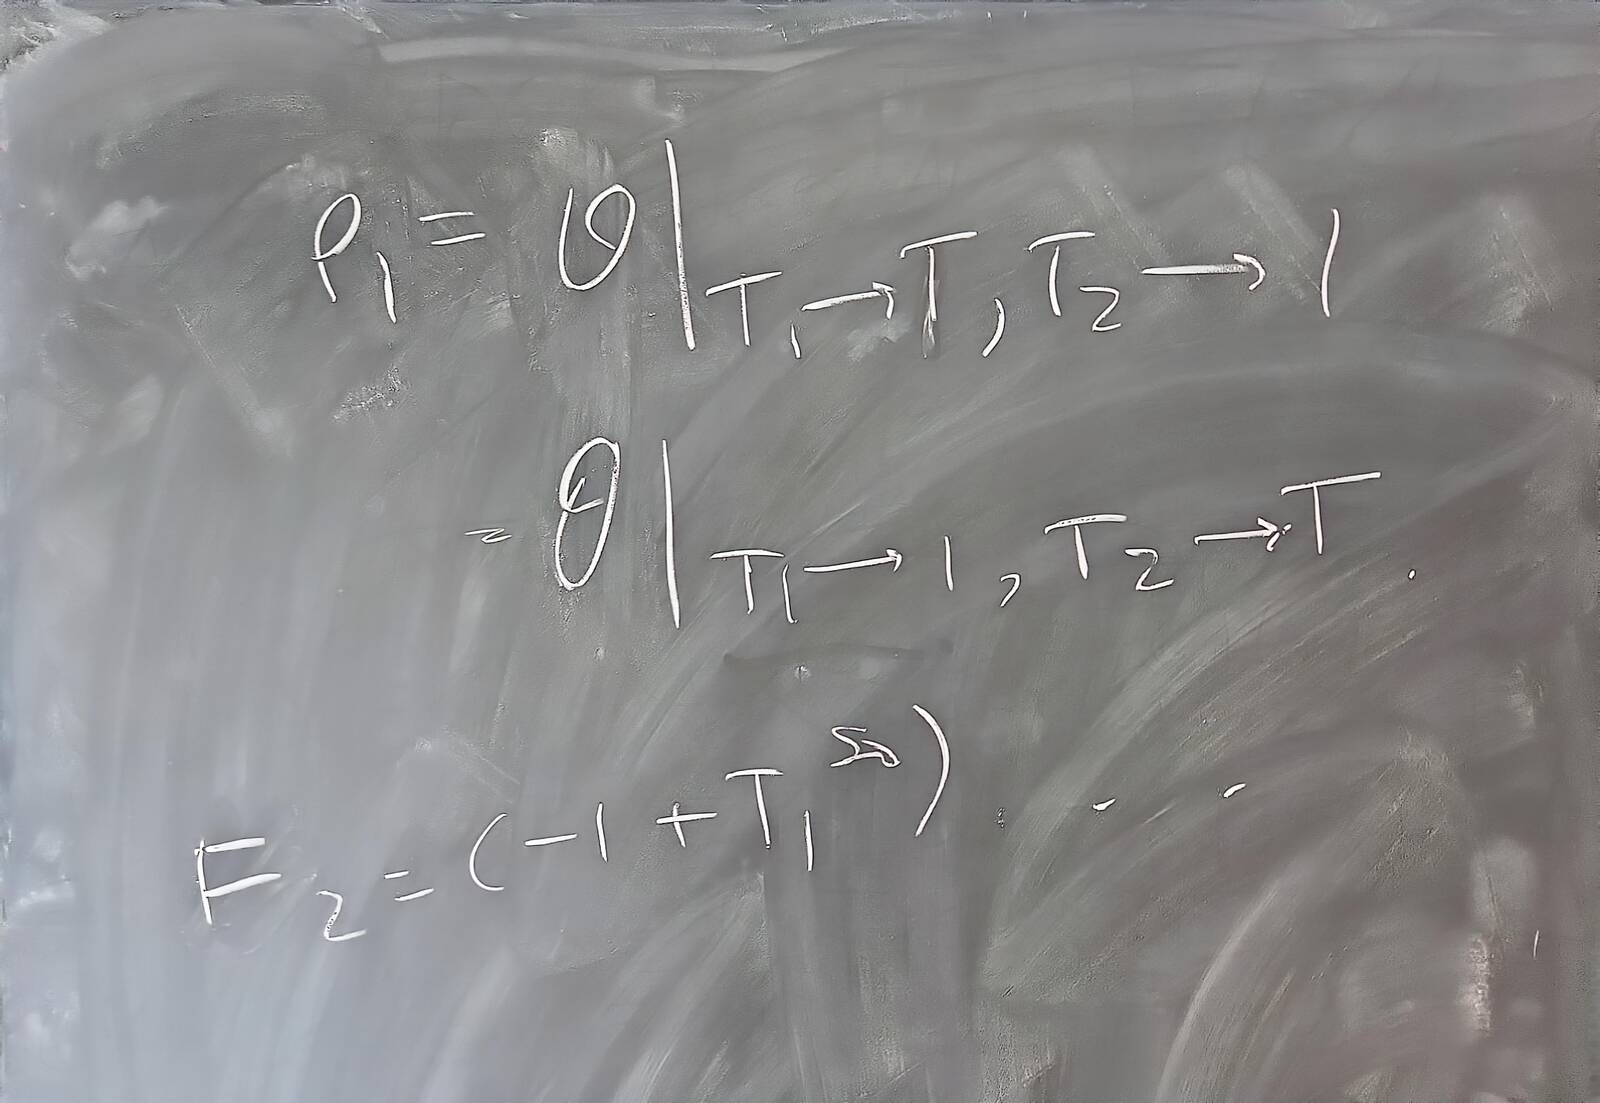 ρ₁ = θ|T₁→T, T₂→1
= θ|T₁→1, T₂→T.
F₂ = (-1 + T₁^50) · · ·